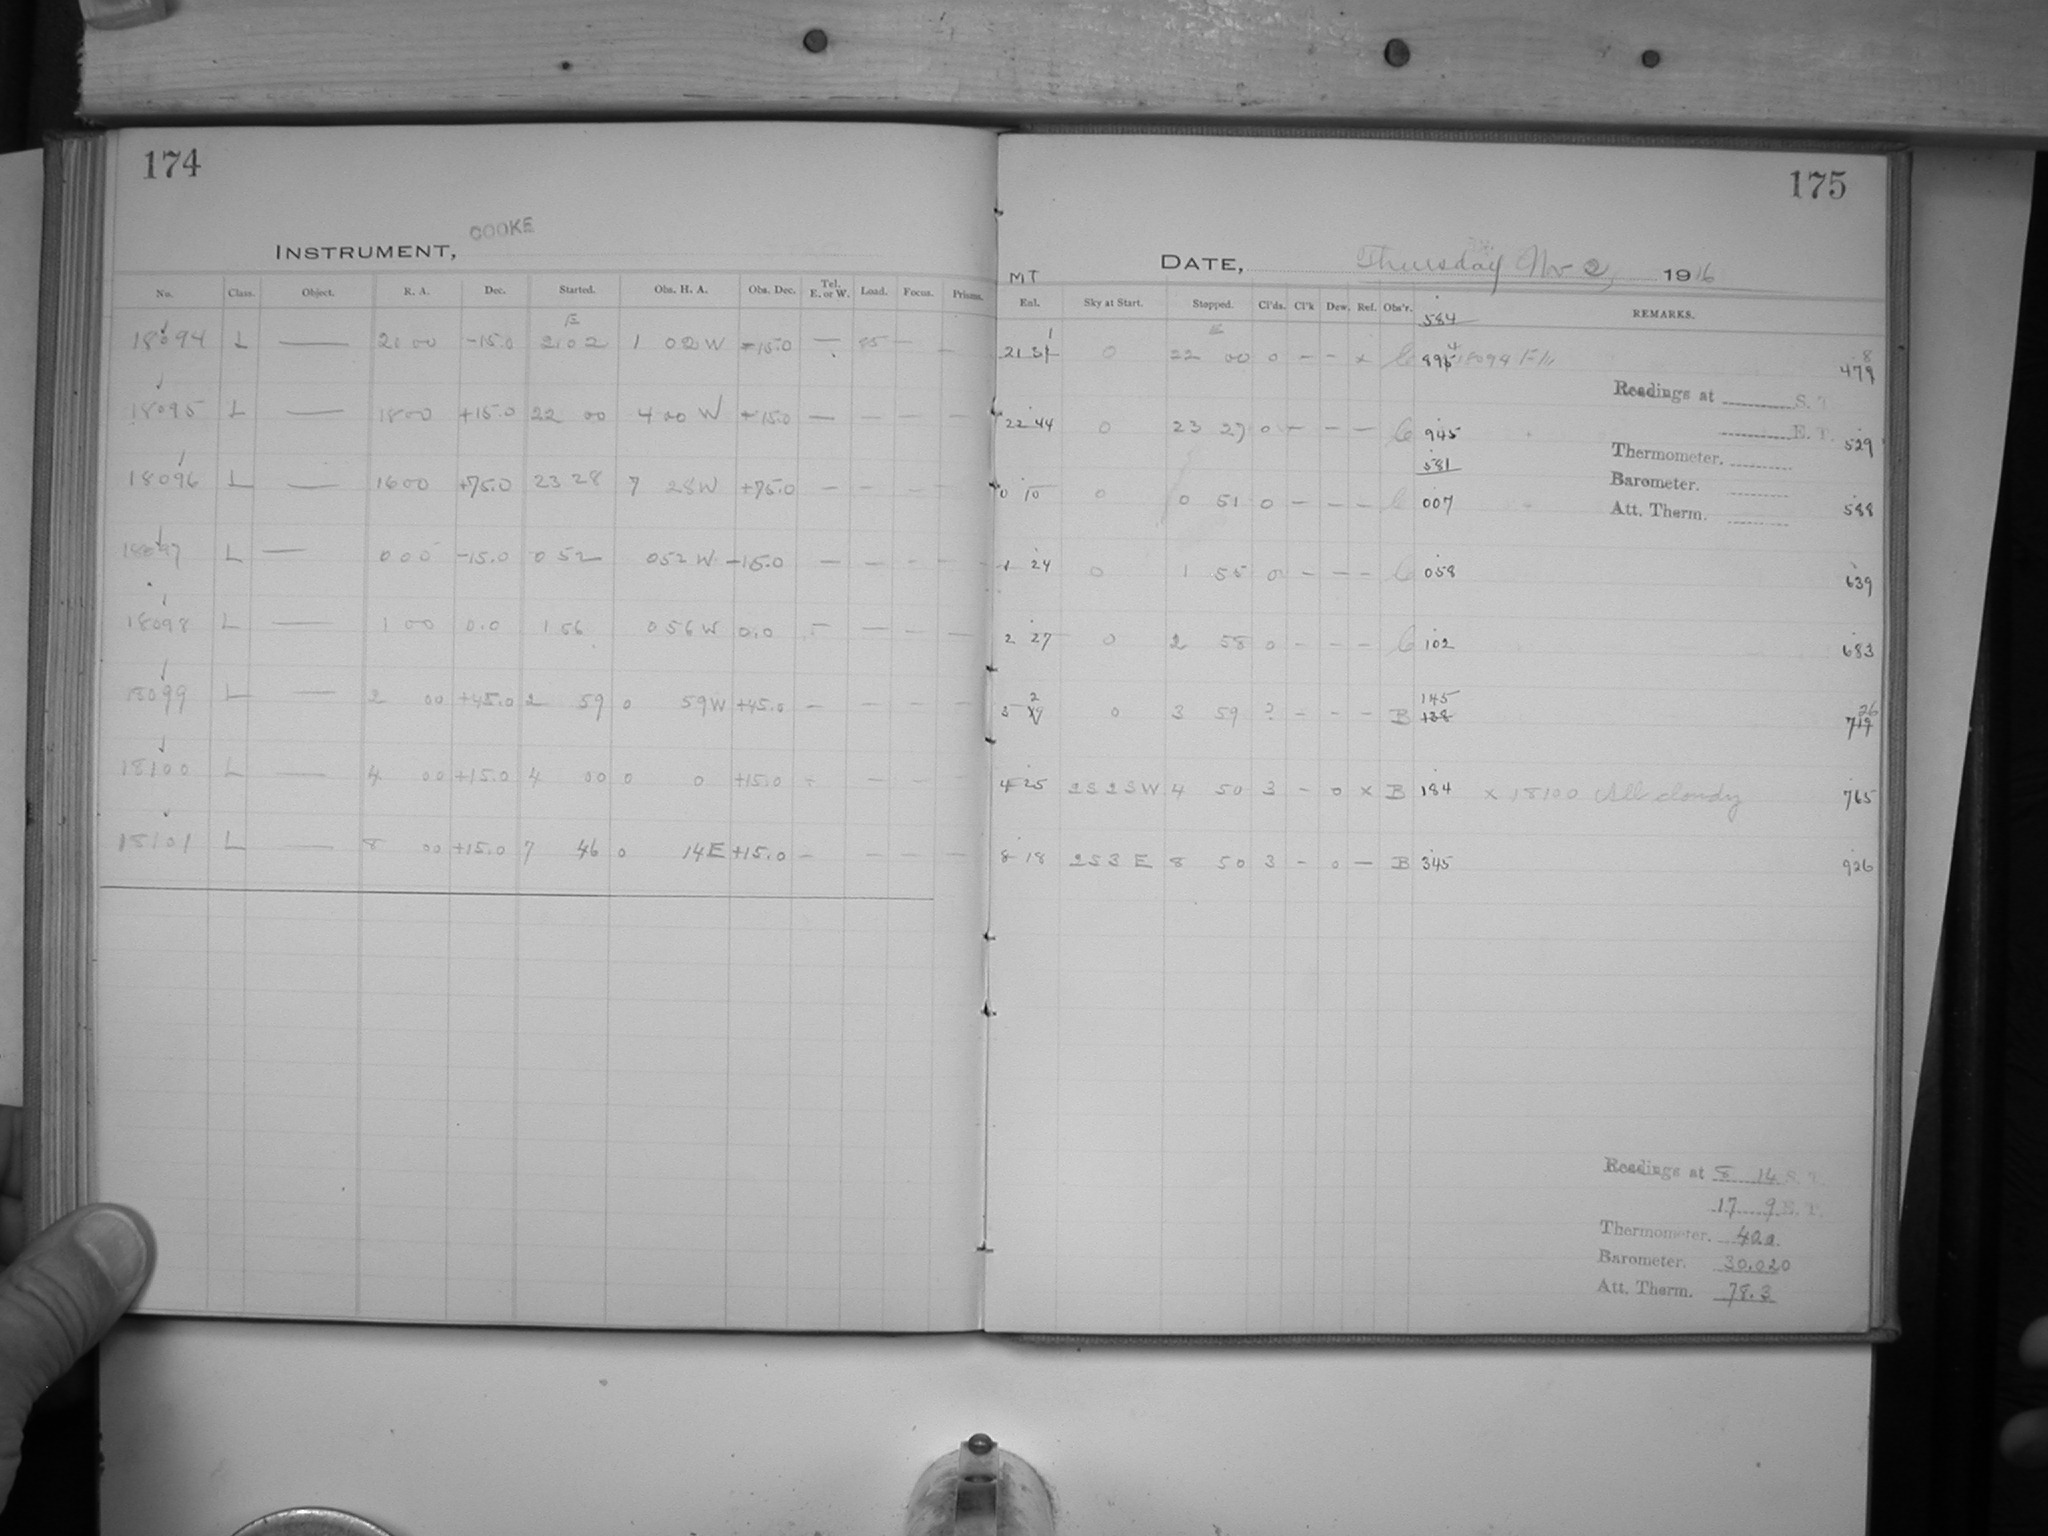 174
COOKE
INSTRUMENT,
No. Class. Object. R. A. Dec. Started. Obs. H. A. Obs. Dec. Tel. E. or W. Load. Focus. Prisms.
E
18094 L — 21 00 -15.0 21 02 1 02 W -15.0 — 85 — —
18095 L — 18 00 +15.0 22 00 4 00 W +15.0 — — — —
18096 L — 16 00 +75.0 23 28 7 28 W +75.0 — — — —
18097 L — 0 00 -15.0 0 52 0 52 W -15.0 — — — —
18098 L — 1 00 0.0 1 56 0 56 W 0.0 — — — —
18099 L — 2 00 +45.0 2 59 0 59 W +45.0 — — — —
18100 L — 4 00 +15.0 4 00 0 0 +15.0 — — — —
18101 L — 8 00 +15.0 7 46 0 14 E +15.0 — — — —
175
DATE, Thursday Nov 2, 1916
MT
Enl. Sky at Start. Stopped. Cl'ds. Cl'k Dew. Rel. Obs'r. REMARKS.
584
E
21 31 0 22 00 0 — — x C 894 18094 478
Readings at S. T.
22 44 0 23 27 0 — — — C 945 529
E. T.
Thermometer.
581
Barometer.
0 10 0 0 51 0 — — — C 007 588
Att. Therm.
1 24 0 1 55 0 — — — C 058 639
2 27 0 2 58 0 — — — C 102 683
145
3 2 0 3 59 ? — — — B 138 726
4 25 2S 2SW 4 50 3 — 0 x B 184 x 18100 All cloudy 765
8 18 2S 3 E 8 50 3 — 0 — B 345 926
Readings at 8 14 S. T.
17 9 E. T.
Thermometer.
Barometer. 30.020
Att. Therm. 78.3